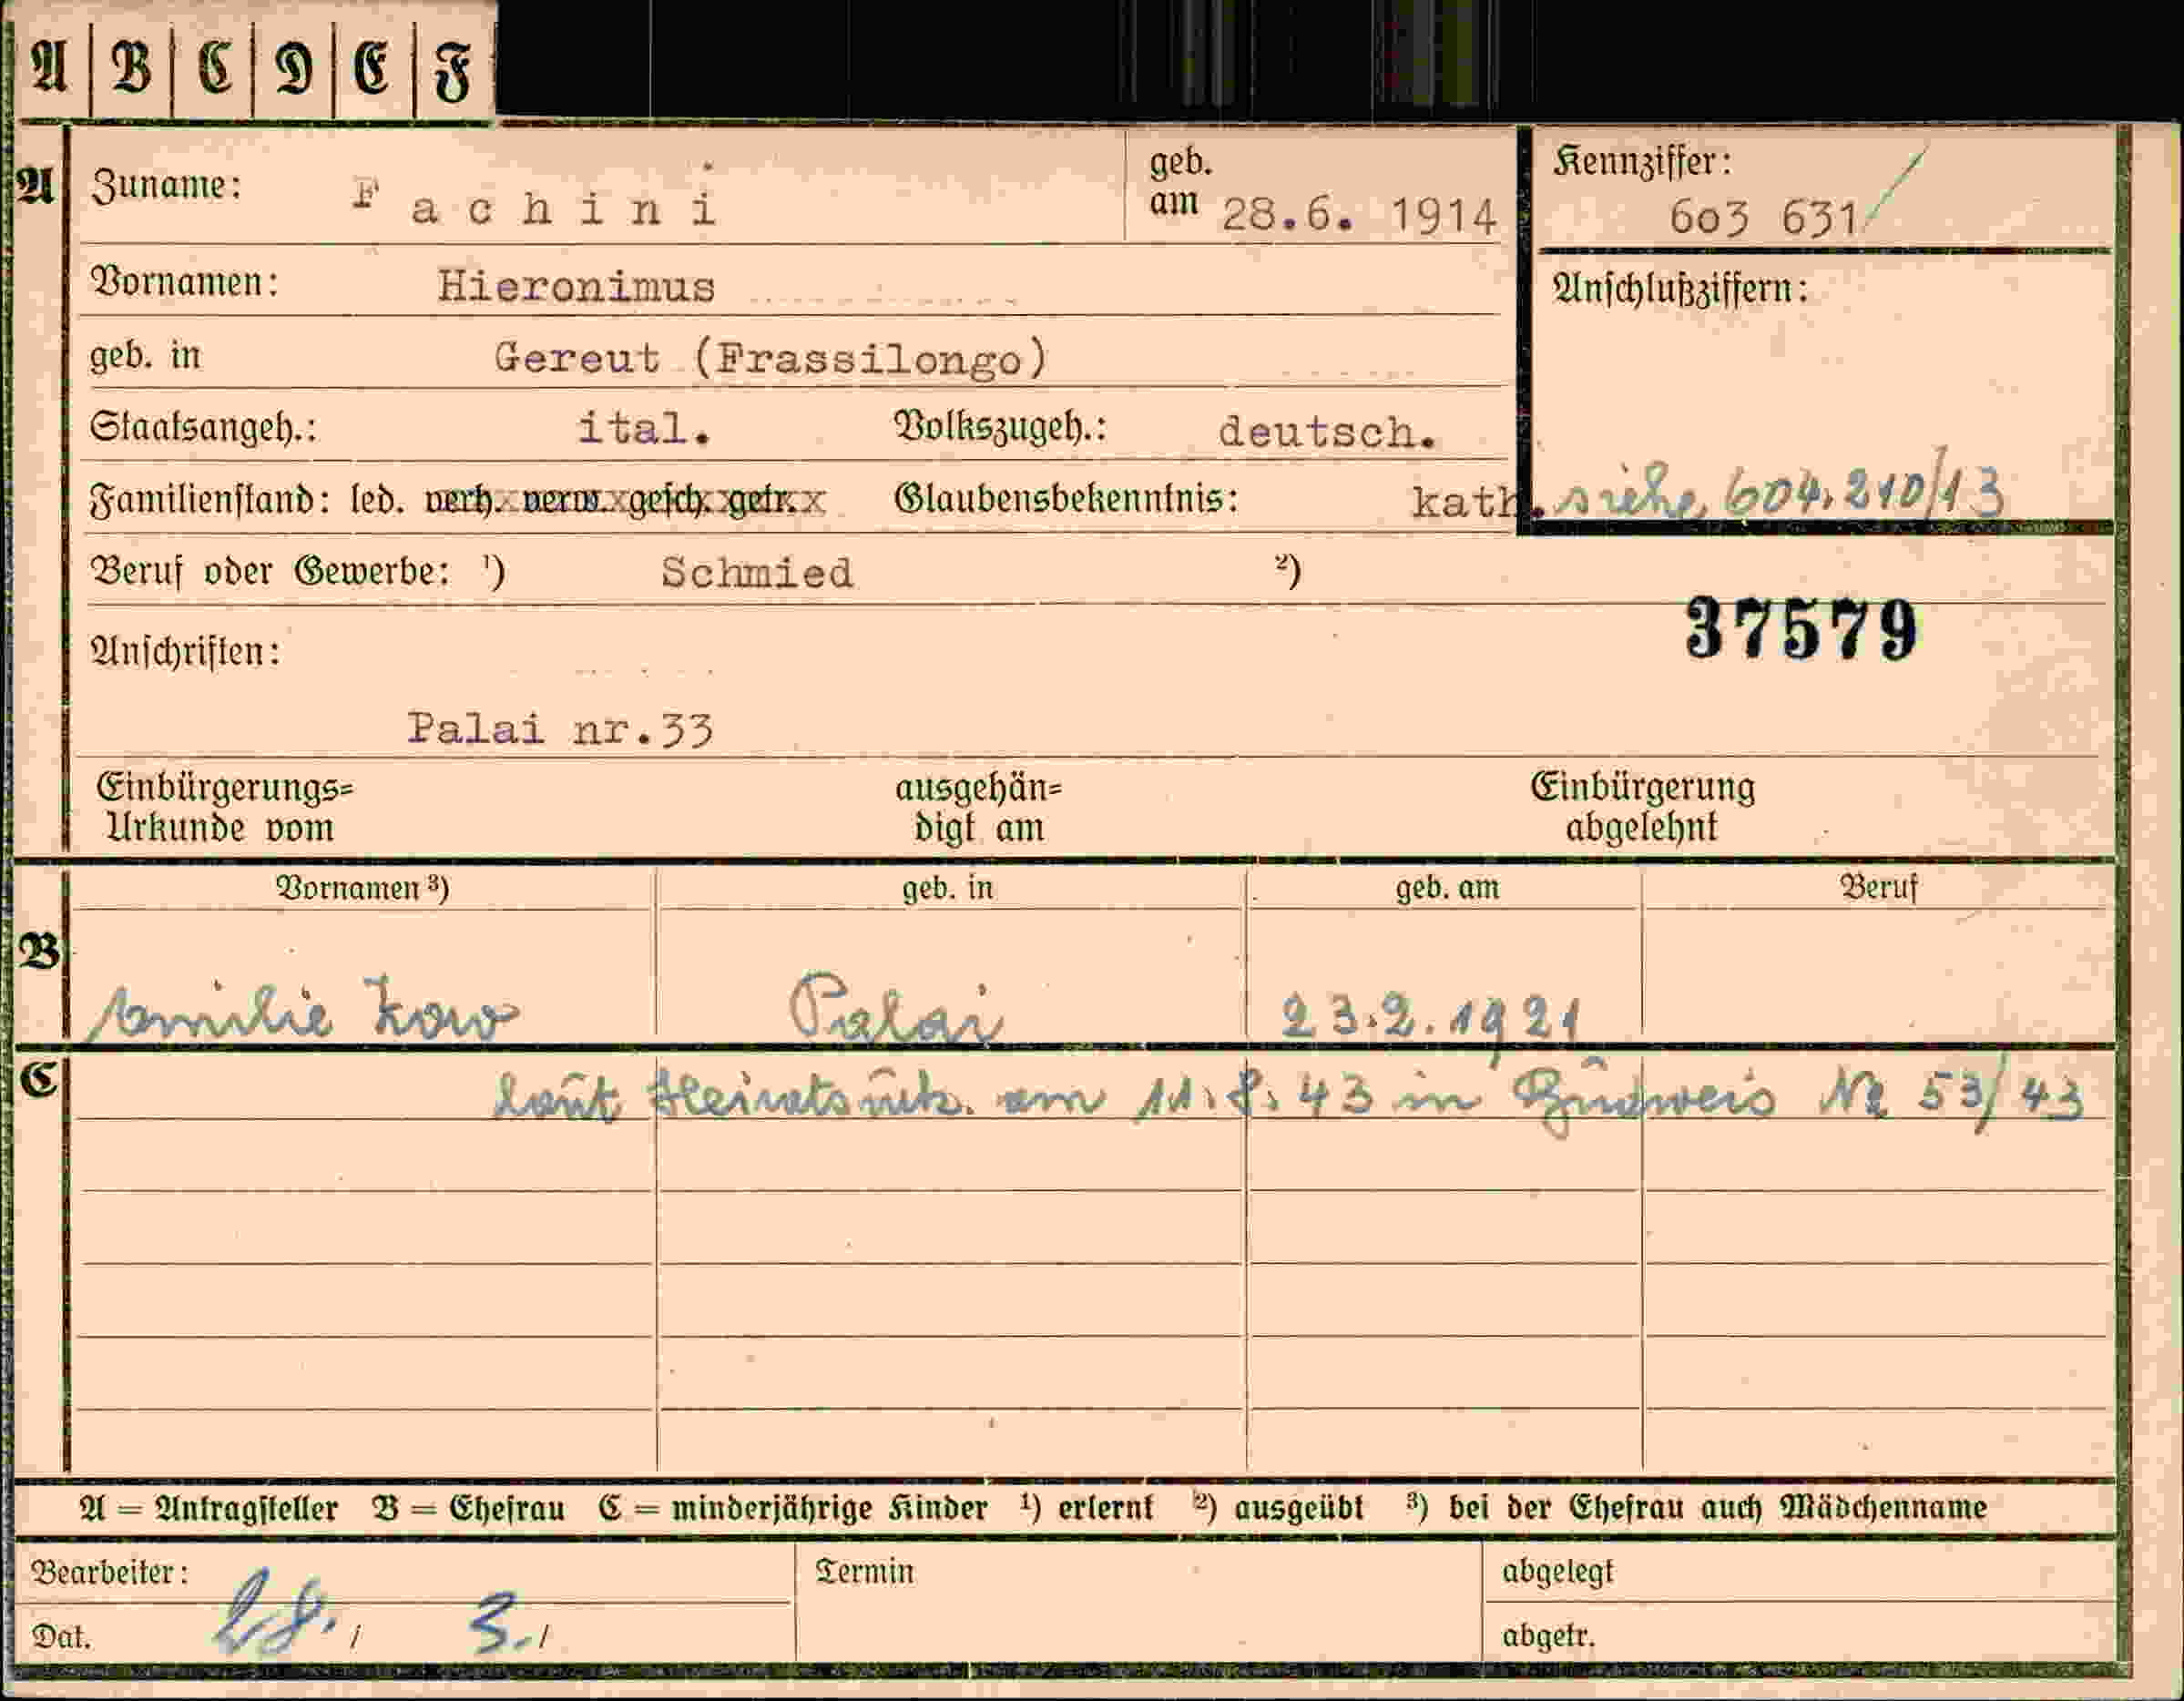 A | B | C | D | E | F
A Zuname: F a c h i n i geb. am 28.6. 1914 Kennziffer: 603 631/
Vornamen: Hieronimus Anschlußziffern:
geb. in Gereut (Frassilongo)
Staatsangeh.: ital. Volkszugeh.: deutsch.
Familienstand: led. verh. verw. gesch. getr. Glaubensbekenntnis: kath. siehe 604.210/13
Beruf oder Gewerbe: ¹) Schmied ²)
37579
Anschriften:
Palai nr.33
Einbürgerungs= ausgehän= Einbürgerung
Urkunde vom digt am abgelehnt
Vornamen ³) geb. in geb. am Beruf
B Emilie Palai 23.2.1921
C laut Heiratsurk. am 11.8.43 in Budweis № 53/43
A = Antragsteller B = Ehefrau C = minderjährige Kinder ¹) erlernt ²) ausgeübt ³) bei der Ehefrau auch Mädchenname
Bearbeiter: Termin abgelegt
Dat. 28./ 3./ abgetr.